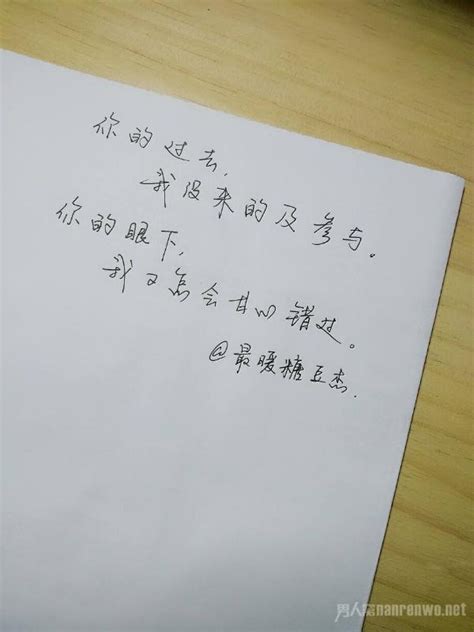 你的过去,
我没来的及参与。
你的眼下,
我又怎会甘心错过。
@最暖糖豆杰.
男人窝nanrenwo.net